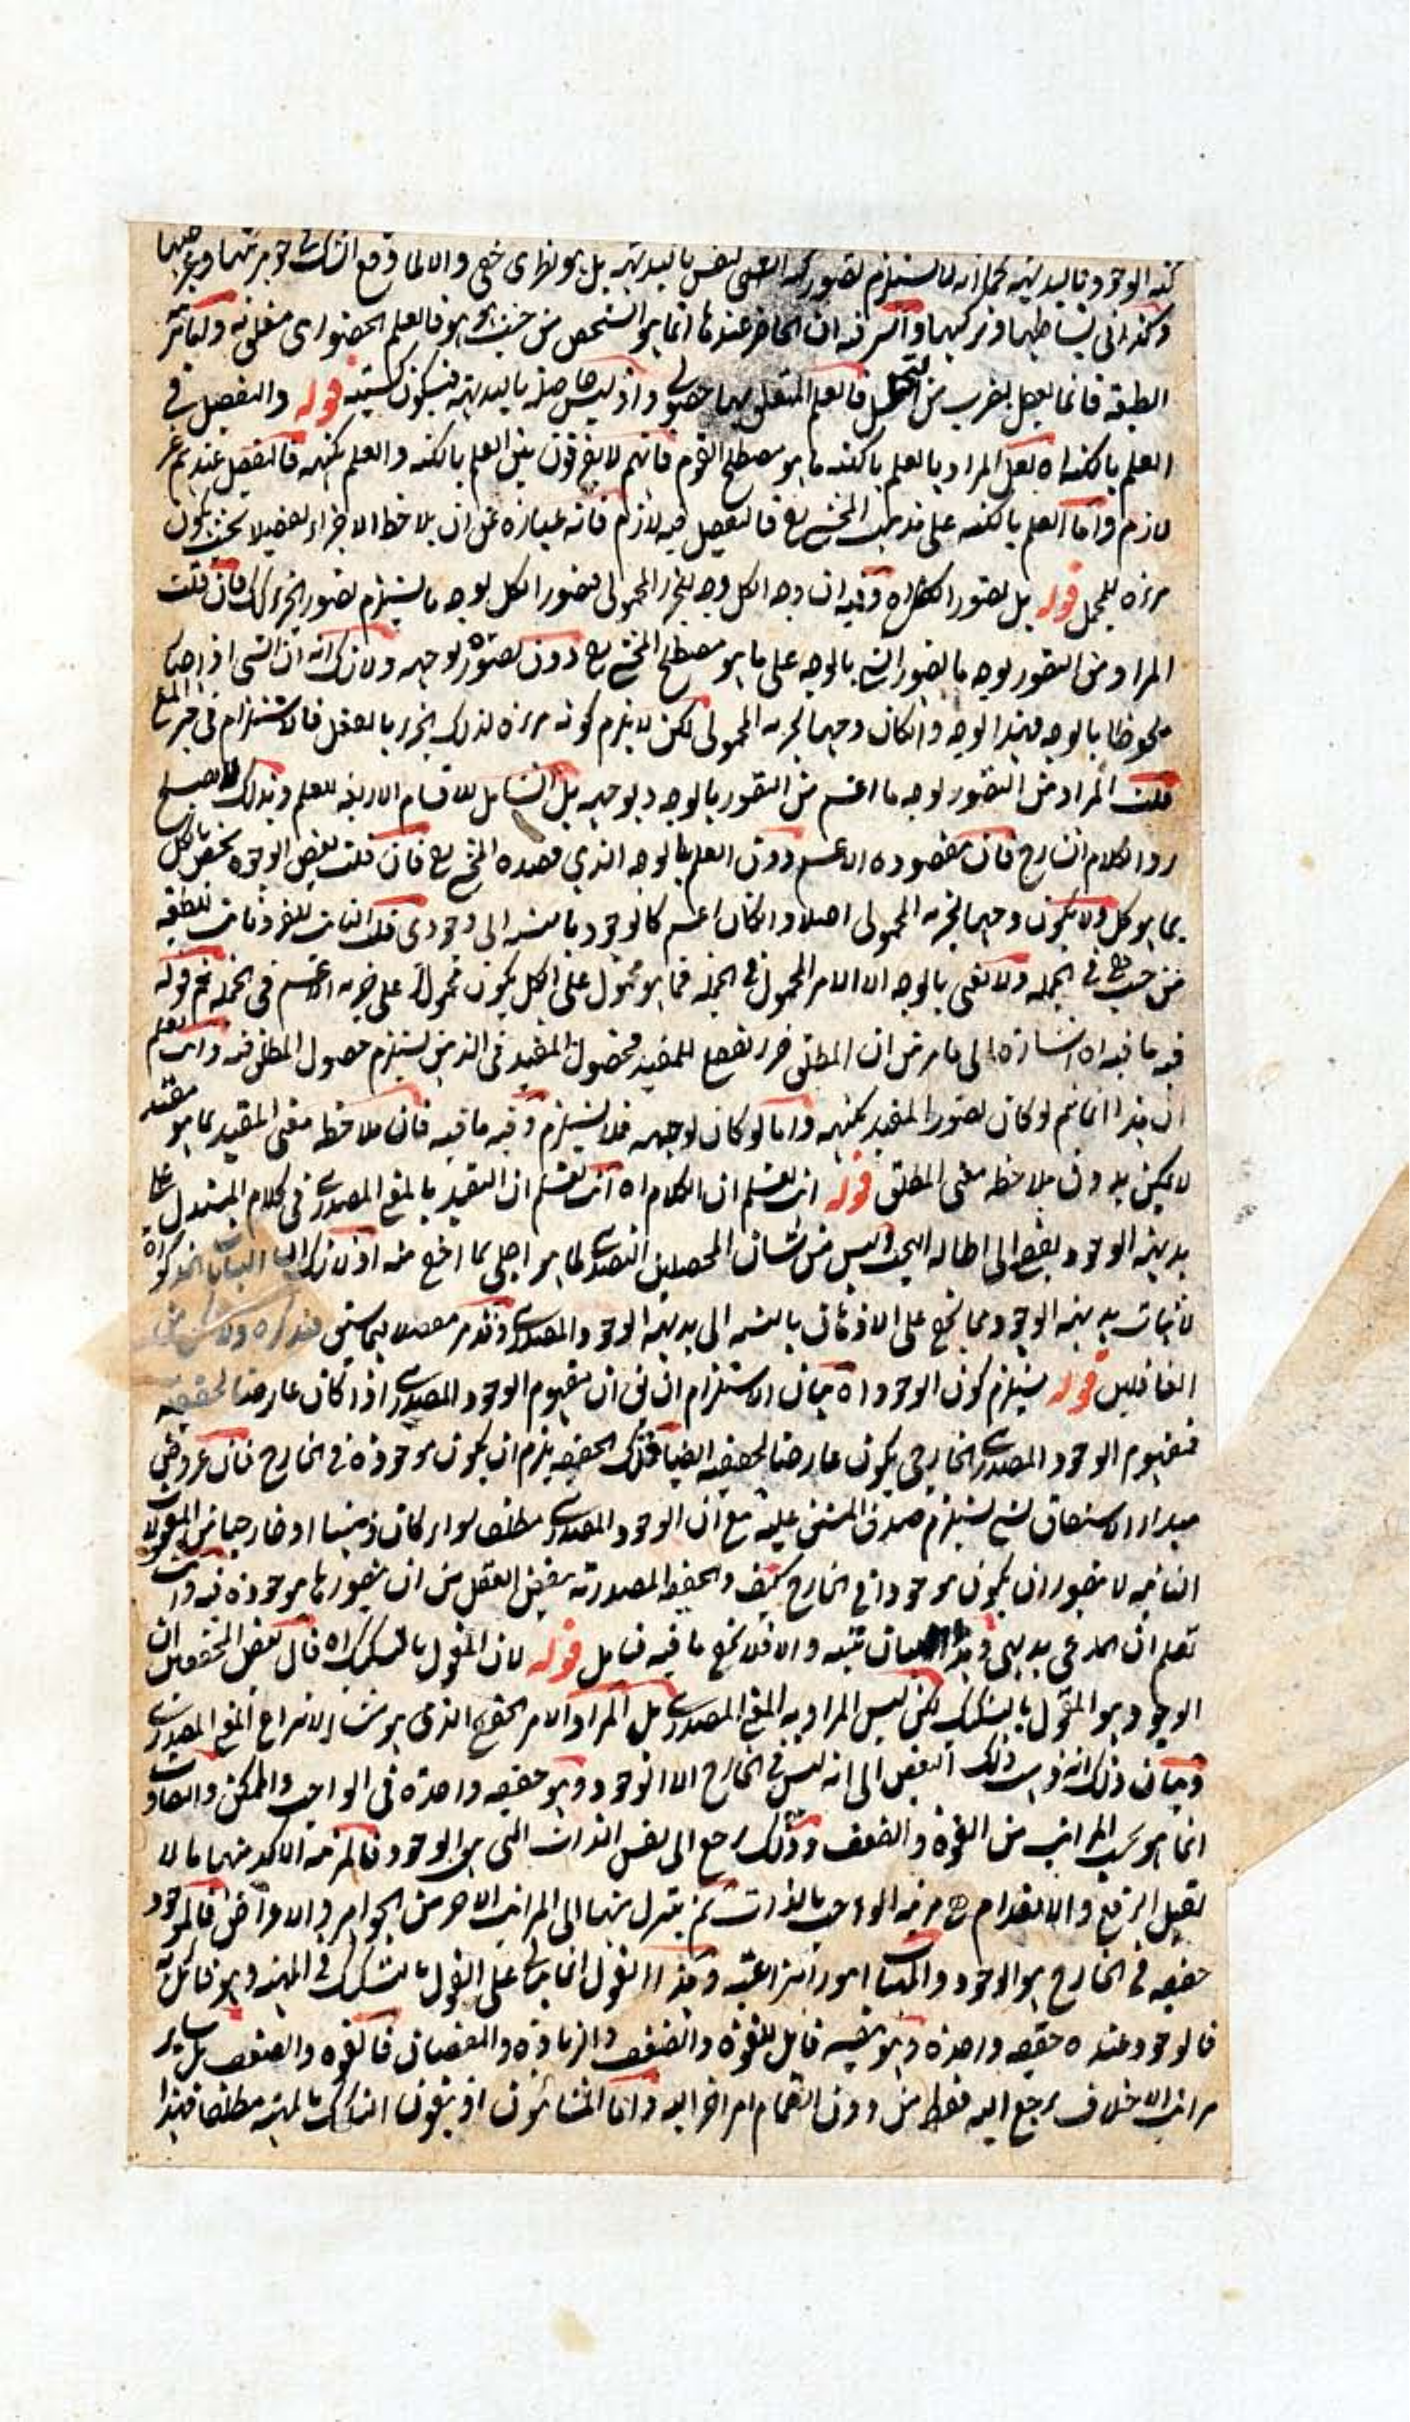 كنه الوجود بالبديهة كما انه لا يستلزم تصور كنه النفس بالبديهة بل هو نظرى خفى والا لما وقع الشك فى جوهريتها وعرضيتها
وكذا فى بساطتها وتركيبها والسر فيه ان الحاضر عندنا انما هو الشخص من حيث هو هو فالعلم الحضورى متعلق به واما
الطبيعة فانما يحصل بضرب من التحليل فالعلم المتعلق بها حصولى واذ ليس حاصلة بالبديهة فيكون كسبية قوله والتفصيل فى
العلم بالكنه اه لعل المراد بالعلم بالكنه ما هو مصطلح القوم فانهم لا يفرقون بين العلم بالكنه والعلم بكنهه فالتفصيل عندهم غير
لازم واما العلم بالكنه على مذهب المخترع فالتفصيل فيه لازم فانه عبارة عن ان يلاحظ الاجزاء تفصيلا بحيث يكون
مرءة للمجمل قوله بل تصور الكل اه وفيه ان وجه الكل وجه للجزء المحمولى فتصور الكل بوجه ما يستلزم تصور الجزء كذلك فان قلت
المراد من التصور بوجه ما تصور الشئ بالوجه على ما هو مصطلح المخترع دون تصوره بوجهه ولا شك انه ان الشئ اذا صار
ملحوظا بالوجه فهذا الوجه وان كان وجها لجزءه المحمولى لكن لا يلزم كونه مرءة لذلك الجزء بالفعل فالاستلزام فى حيز المنع
قلت المراد من التصور بوجه ما اعم من التصور بالوجه وبوجهه بل الشامل للاقسام الاربعة للعلم وبذلك يصح
رد الكلام الشارح فان مقصوده الاعم دون العلم بالوجه الذي قصده المخترع فان قلت بعض الوجوه يختص بالكل
بما هو كل ولا يكون وجها لجزءه المحمولى اصلا وان كان اعم كالوجود بالنسبة الى وجودى قلت الثابت للفرد ثابت للطبيعة
من حيث هى فى الجملة ولا نعنى بالوجه الا الامر المحمول فى الجملة فما هو محمول على الكل يكون محمولا على جزءه الاعم فى الجملة ثم قوله
فيه ما فيه اه اشارة الى ما مر من ان المطلق جزء للمقيد فحصول المقيد فى الذهن يستلزم حصول المطلق فيه وانت تعلم
ان هذا انما يتم لو كان تصور المقيد بكنهه واما لو كان بوجهه فلا يستلزم وفيه ما فيه فان ملاحظة معنى المقيد بما هو مقيد
لا يمكن بدون ملاحظة معنى المطلق قوله انت تعلم ان الكلام اه انت تعلم ان التقييد بالمعنى المصدرى فى كلام المستدل على
بديهة الوجود يفضى الى اطالة البحث وليس من شان المحصلين التصدى لما هو اجلى بما اخفى منه اذ لا شك ان البيان المذكورة
لاثبات بديهة الوجود مما يخفى على الاذهان بالنسبة الى بديهة الوجود المصدرى وقد مر مفصلا فيما سبق فتذكره ولا تكن من
الغافلين قوله يستلزم كون الوجود اه بيان الاستلزام ان يق ان مفهوم الوجود المصدرى اذا كان عارضا لحقيقة
فمفهوم الوجود المصدرى الخارجى يكون عارضا لحقيقة ايضا فتلك الحقيقة يلزم ان يكون موجودة فى الخارج فان عروض
مبدا الاشتقاق لشئ يستلزم صدق المشتق عليه مع ان الوجود المصدرى مطلقا سواء كان ذهنيا او خارجيا من المعقولات
الثانية لا يتصور ان يكون موجودا فى الخارج كيف والحقيقة المصدرية ينقبض العقل من ان يتصورها موجودة فيه وانت
تعلم ان المدعى بديهى وهذا البيان تنبيه والا فلا يخفى ما فيه فتامل قوله لان المقول بالتشكيك اه قال بعض المحققين ان
الوجود هو المقول بالتشكيك لكن ليس المراد به المعنى المصدرى بل المراد الامر الحقيقى الذى هو منشا لانتزاع المعنى المصدرى
وبيان ذلك انه ذهب ذلك البعض الى انه ليس فى الخارج الا الوجود وهو حقيقة واحدة فى الواجب والممكن والتفاوت
انما هو بحسب المراتب من القوة والضعف وذلك يرجع الى نفس الذات التى هى الوجود فالمرتبة الاكد منهما ما لا
يقبل الرفع والانعدام وهى مرتبة الواجب بالذات ثم يتنزل منها الى المراتب الاخر من الجواهر والاعراض فالموجود
حقيقة فى الخارج هو الوجود والمهيات امور انتزاعية وهذا القول انما يتاتى على القول بالتشكيك فى المهية وهو قائل به
فالوجود عنده حقيقة واحدة وهو بنفسه قابل للقوة والضعف والزيادة والنقصان فالقوة والضعف بل ساير
مراتب الاختلاف يرجع اليه فقط من دون انضمام امر اخر اليه واما المشائون اذ ينفون التشكيك بالمهية مطلقا فهذا